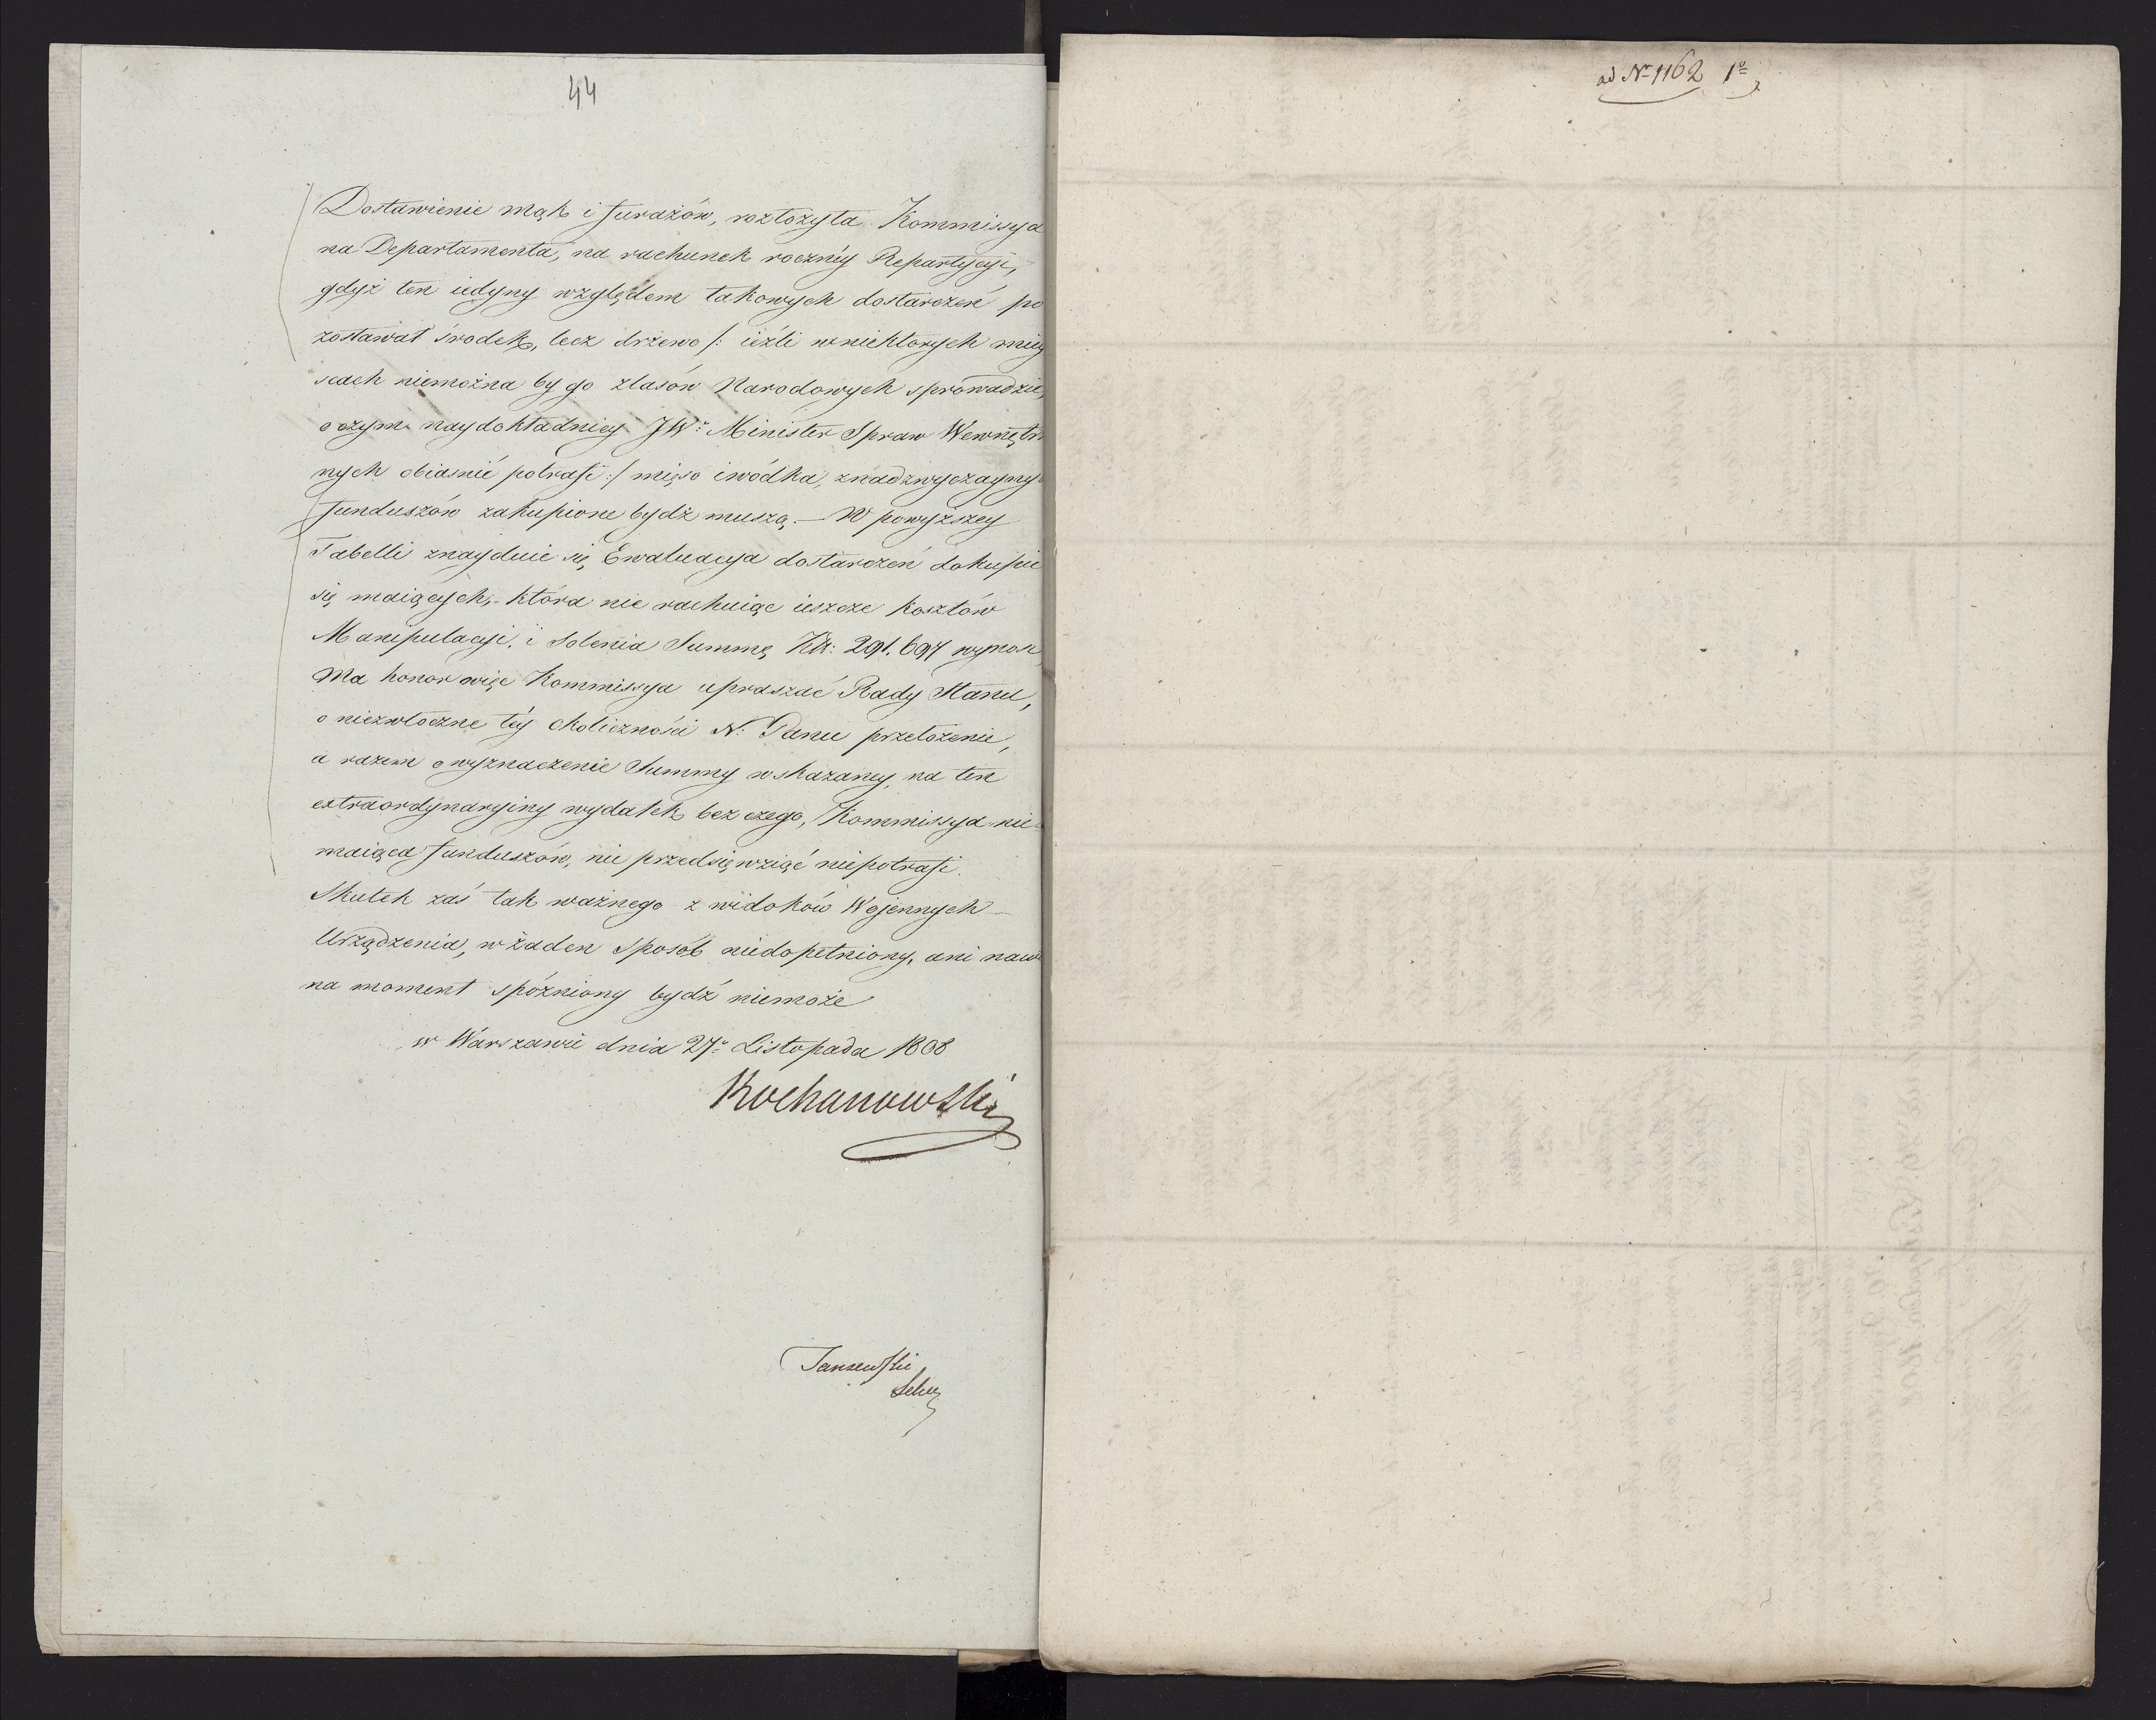 44
Dostawienie mąk i furażów, rozłożyła Kommissya
na Departamenta, na rachunek roczney Repartycyi,
gdyż ten iedyny względem takowych dostarczeń po
zostawał środek, lecz drzewo /: ieźli w niektorych miey
scach niemożna by go z lasów Narodowych sprowadzić,
o czym naydokładniey JW: Minister Spraw Wewnętrz
nych obiasnić potrafi :/ mięso i wódka, z nadzwyczayny
funduszów zakupione bydź muszą. — W powyższey
Tabelli znayduie się Ewaluacya dostarczeń dokupić
się maiących, - która nie rachuiąc ieszcze kosztów
Manipulacyi, i Solenia Summę Złł: 291.697 wynosi
Ma honor więc Kommissya upraszać Rady Stanu,
o niezwłoczne téy okoliczności N: Panu przełożenie,
a razem o wyznaczenie Summy wskazaney, na ten
extraordynaryiny wydatek bez czego, Kommissya nie
maiąca funduszów, nic przedsięwziąć niepotrafi.
Skutek zaś tak ważnego z widoków Wojennych
Urządzenia, w żaden Sposób niedopełniony, ani naw
na moment spóźniony bydź niemoże
w Warszawie dnia 27º Listopada 1808
Kochanowski
ad Nº 1162 1º